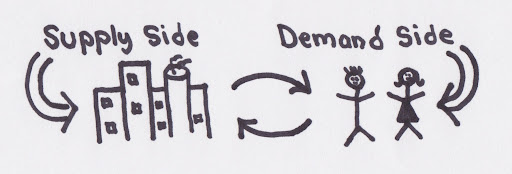 Supply Side
Demand Side